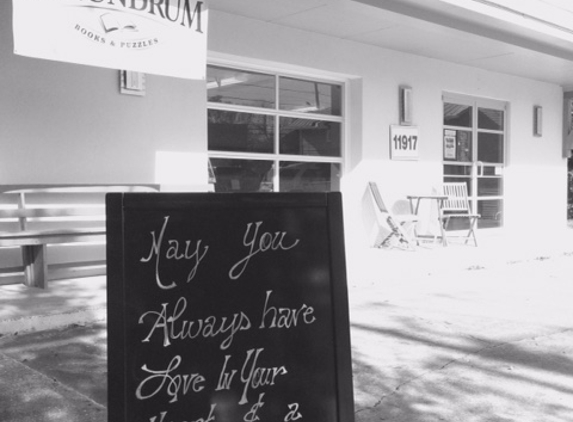 NDRUM
BOOKS & PUZZLES
11917
May You
Always have
Love In Your
& a